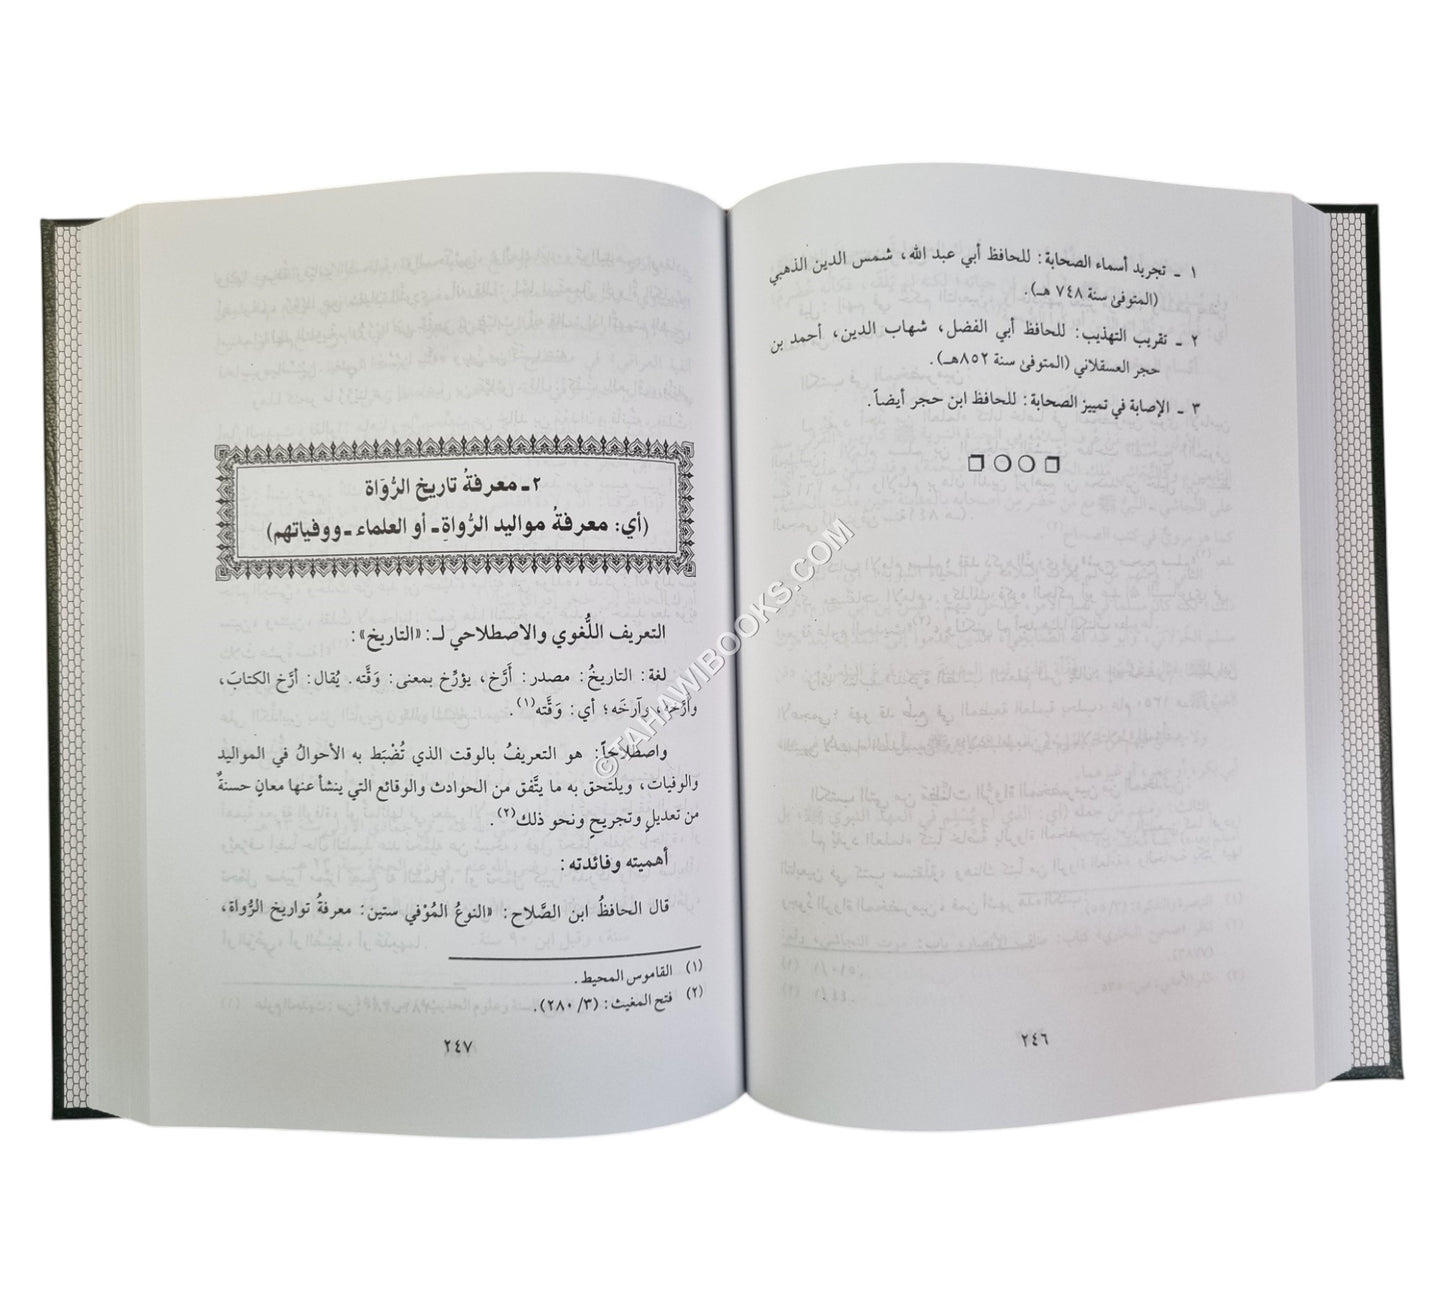 ١ ـ تجريد أسماء الصحابة: للحافظ أبي عبد الله، شمس الدين الذهبي
(المتوفىٰ سنة ٧٤٨ هـ).
٢ ـ تقريب التهذيب: للحافظ أبي الفضل، شهاب الدين، أحمد بن
حجر العسقلاني (المتوفىٰ سنة ٨٥٢هـ).
٣ ـ الإصابة في تمييز الصحابة: للحافظ ابن حجر أيضاً.
٢٤٦
٢ ـ معرفةُ تاريخ الرُّوَاة
(أي: معرفةُ مواليد الرُّواةِ ـ أو العلماء ـ ووفياتهم)
التعريف اللُّغوي والاصطلاحي لـ: «التاريخ»:
لغة: التاريخُ: مصدر: أَرَّخ، يؤرِّخ بمعنى: وَقَّته. يُقال: أرَّخ الكتابَ،
وأرَّخَه، وآرخَه؛ أي: وَقَّته(١).
واصطلاحاً: هو التعريفُ بالوقت الذي تُضْبَط به الأحوالُ في المواليد
والوفيات، ويلتحق به ما يتَّفق من الحوادث والوقائع التي ينشأ عنها معانٍ حسنةٌ
من تعديلٍ وتجريحٍ ونحو ذلك(٢).
أهميته وفائدته:
قال الحافظُ ابن الصَّلاح: «النوعُ المُوْفي ستين: معرفةُ تواريخ الرُّواة،
(١) القاموس المحيط.
(٢) فتح المغيث: (٣/ ٢٨٠).
٢٤٧
©TAHAWIBOOKS.COM